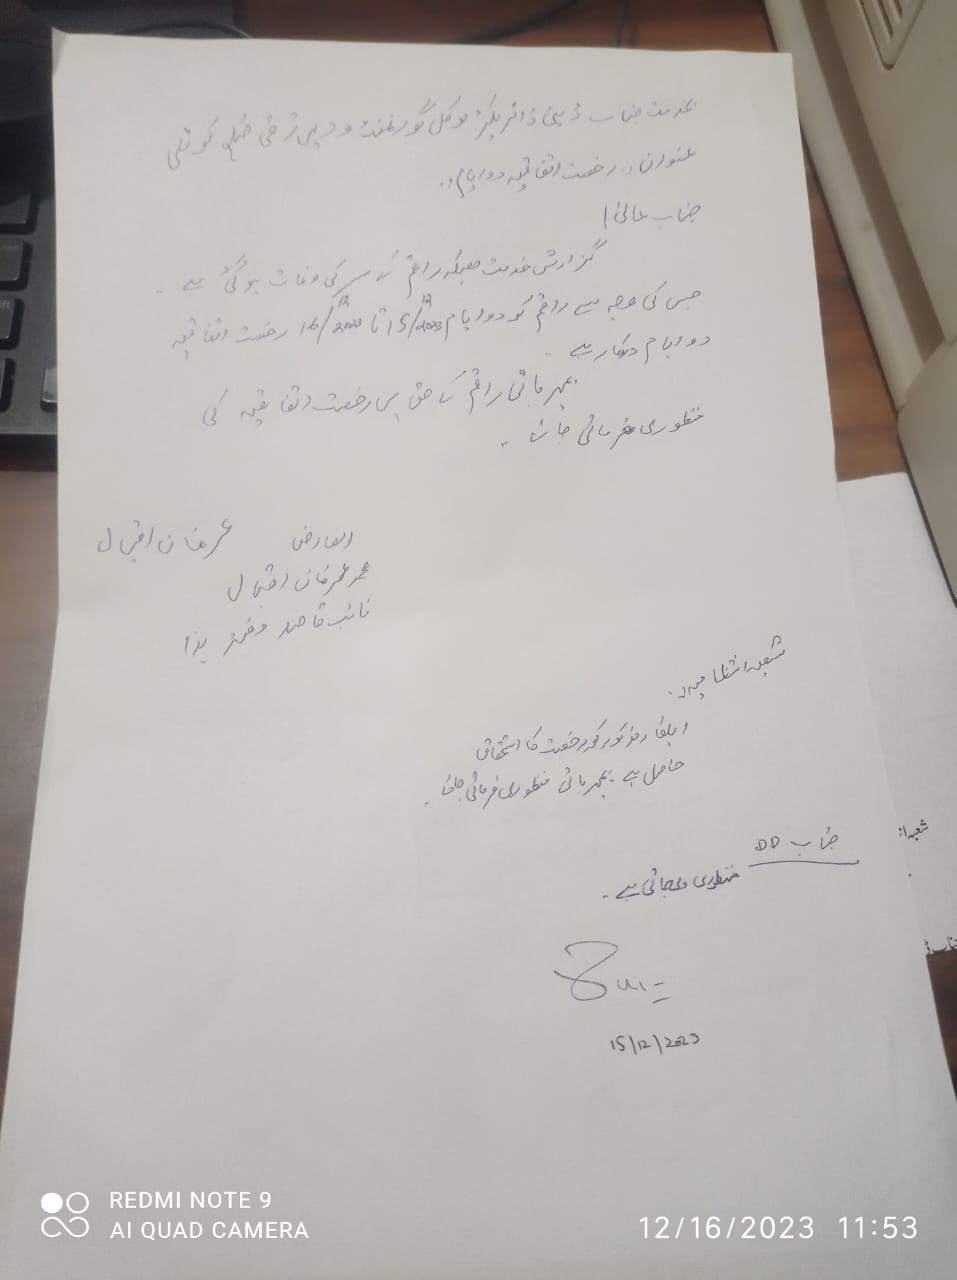 بخدمت جناب ڈپٹی ڈائریکٹر لوکل گورنمنٹ و دیہی ترقی ضلع کوٹلی
عنوان :۔ رخصت اتفاقیہ دو ایام :۔
جناب عالیٰ!
گزارش خدمت ھیکہ راقم کے سسر کی وفات ہو گئی ہے ۔
جس کی وجہ سے راقم کو دو ایام 15/12/2023 تا 16/12/2023 رخصت اتفاقیہ
دو ایام درکار ہے ۔
بمہربانی راقم کے حق میں رخصت اتفاقیہ کی
منظوری فرمائی جائے ۔
العارض عرفان اقبال
محمد عرفان اقبال
نائب قاصد دفتر ہذا
شعبہ انتظامیہ:۔
اہلکار مذکور کو رخصت کا استحقاق
حاصل ہے ۔ بمہربانی منظوری فرمائی جائے ۔
جناب DD
منظوری دی جاتی ہے ۔
15/12/2023
شعبہ ا:
جناب ڈ
REDMI NOTE 9
AI QUAD CAMERA
12/16/2023 11:53